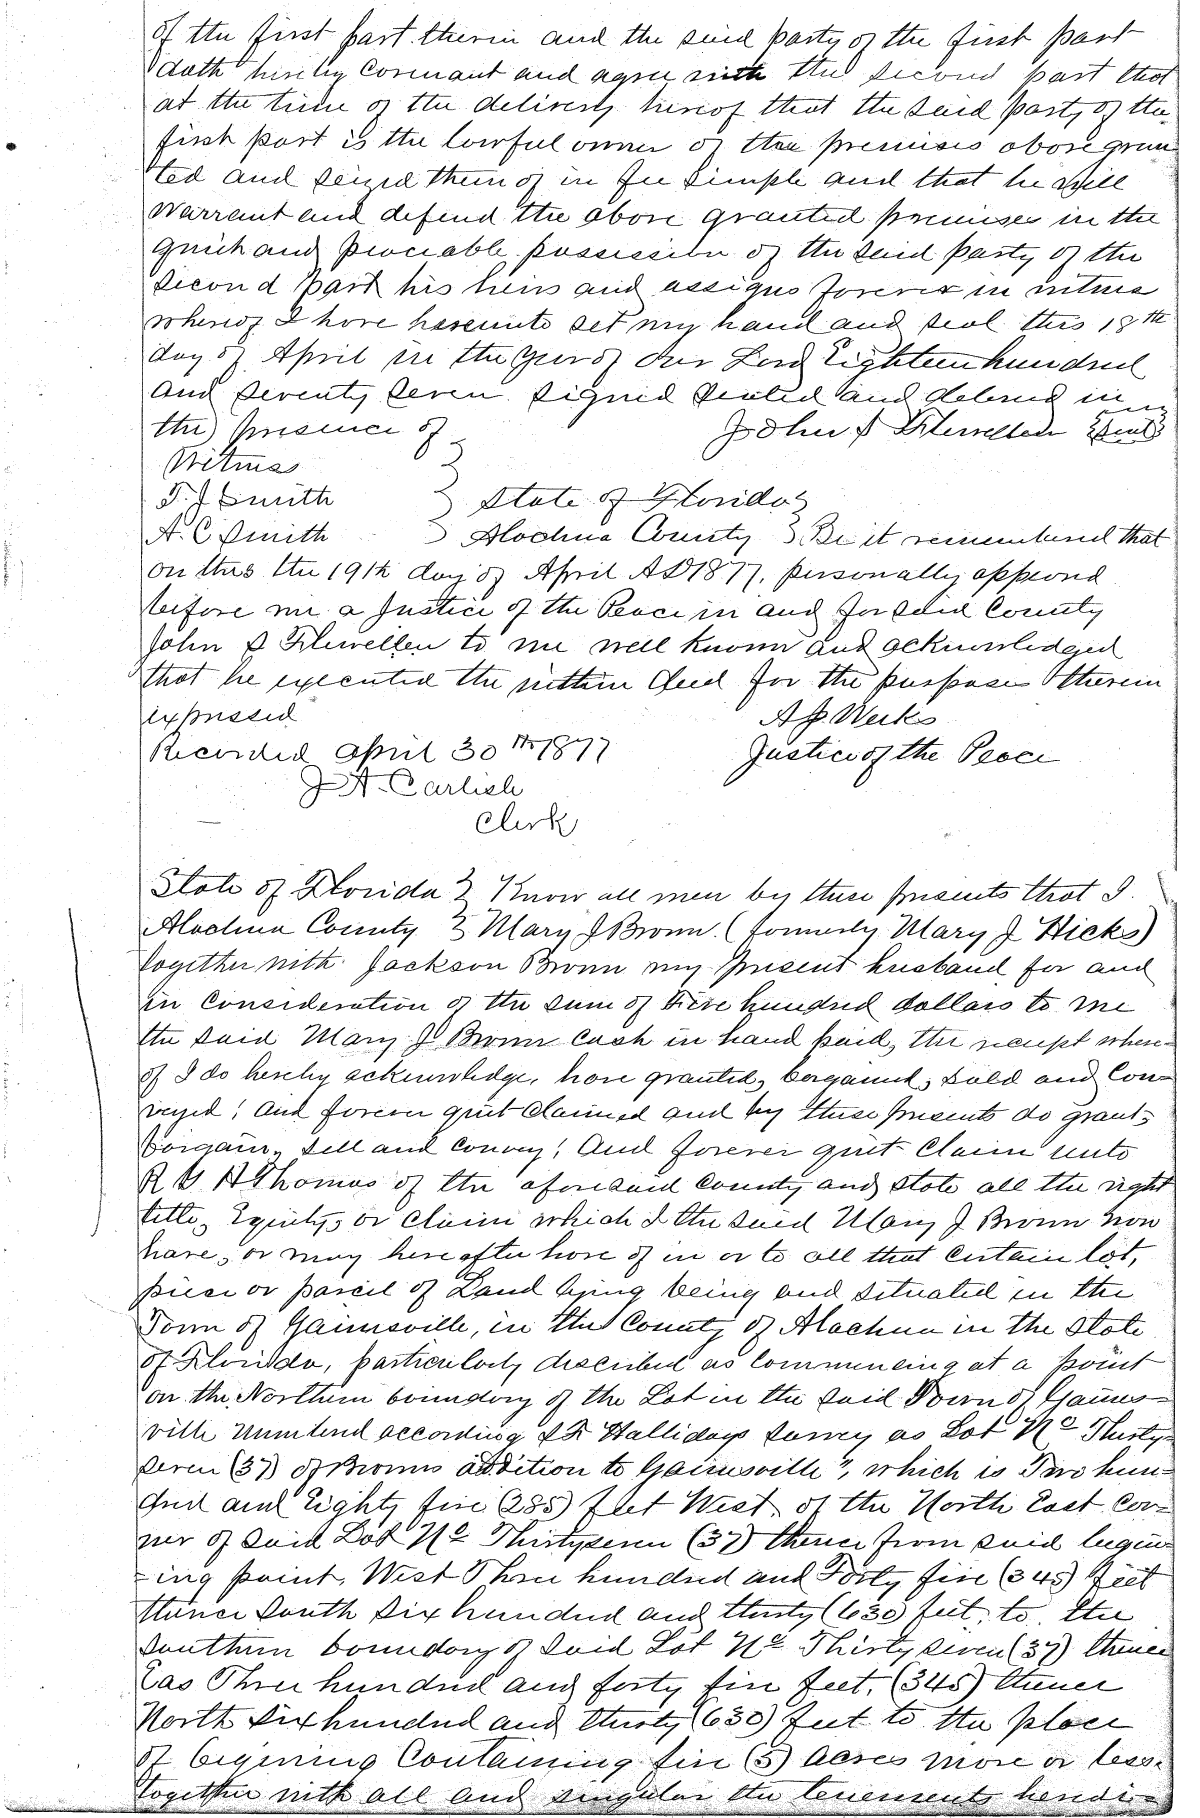 of the first part therein and the said party of the first part
doth hereby Covenant and agree with the second part that
at the time of the delivery hereof that the said party of the
first part is the lawful owner of the premises above gran
ted and seized thereof in fee simple and that he will
warrant and defend the above granted premises in the
quiet and peaceable possession of the said party of the
second part his heirs and assigns forever in witness
whereof I have hereunto set my hand and seal this 18th
day of April in the year of Our Lord Eighteen hundred
and seventy seven signed sealed and delivered in
the presence of John S Flewellen Seal
Witness
T. J Smith State of Florida
A. C Smith Alachua County Be it remembered that
on this the 19th day of April AD 1877, personally appeared
before me a Justice of the Peace in and for said County
John S Flewellen to me well known and acknowledged
that he executed the within deed for the purposes therein
expressed A J. Weeks
Recorded April 30th 1877 Justice of the Peace
J A. Carlisle
Clerk
State of Florida Know all men by these presents that I
Alachua County Mary J Brown (formerly Mary J Hicks)
together with Jackson Brown my present husband for and
in Consideration of the sum of Five hundred dollars to me
the said Mary J Brown Cash in hand paid, the receipt where=
of I do hereby acknowledge, have granted, bargained, sold and Con=
veyed; And forever quit claimed and by these presents do grant,
bargain, sell and convey; And forever quit Claim unto
R G H Thomas of the aforesaid County and state all the right
title, Equity, or Claim which I the said Mary J Brown now
have, or may here after have of in or to all that certain lot,
piece or parcel of Land lying being and situated in the
Town of Gainesville, in the County of Alachua in the State
of Florida, particularly described as Commencing at a point
on the Northern boundary of the Lot in the said Town of Gaines=
ville numbered according to Hallidays survey as Lot No Thirty=
seven (37) of Browns addition to Gainesville", which is Two hun=
dred and Eighty five (285) feet West of the North East Cor=
ner of said Lot No Thirty seven (37) thence from said beginn
=ing point, West Three hundred and Forty five (345) feet
thence South Six hundred and thirty (630) feet, to the
southern boundary of said Lot No Thirty seven (37) thence
Eas Three hundred and forty five feet, (345) thence
North Six hundred and thirty (630) feet to the place
of beginning Containing five (5) Acres more or less.
together with all and singular the tenements heredi=